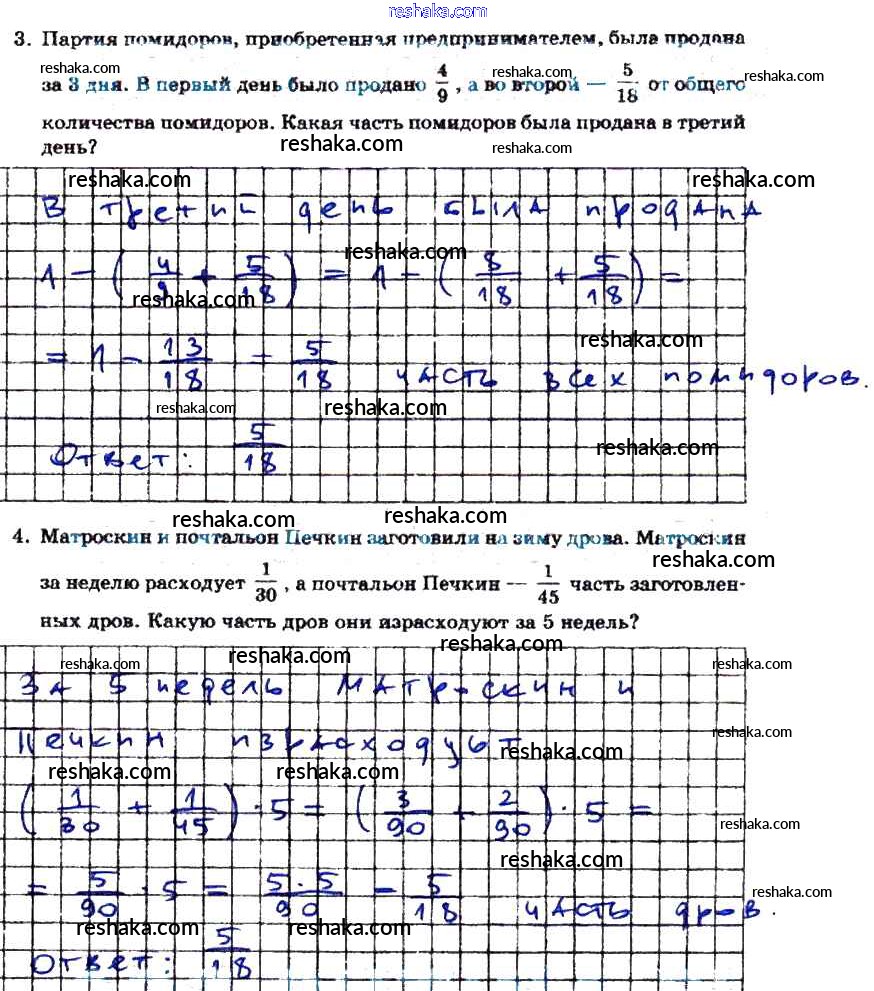 reshaka.com
3. Партия помидоров, приобретенная предпринимателем, была продана
reshaka.com reshaka.com reshaka.com
за 3 дня. В первый день было продано 4/9, а во второй — 5/18 от общего
количества помидоров. Какая часть помидоров была продана в третий
день? reshaka.com reshaka.com
reshaka.com reshaka.com
В третий день была продана
reshaka.com
1 - (4/9 + 5/18) = 1 - (8/18 + 5/18) =
reshaka.com
reshaka.com
= 1 - 13/18 = 5/18 часть всех помидоров.
reshaka.com reshaka.com
Ответ: 5/18
reshaka.com
reshaka.com reshaka.com
4. Матроскин и почтальон Печкин заготовили на зиму дрова. Матроскин
reshaka.com
за неделю расходует 1/30, а почтальон Печкин — 1/45 часть заготовлен-
ных дров. Какую часть дров они израсходуют за 5 недель?
reshaka.com
reshaka.com reshaka.com reshaka.com
За 5 недель Матроскин и
reshaka.com
Печкин израсходуют
reshaka.com
reshaka.com reshaka.com
(1/30 + 1/45) · 5 = (3/90 + 2/90) · 5 =
reshaka.com
reshaka.com
= 5/90 · 5 = 5·5/90 = 5/18 часть дров.
reshaka.com
reshaka.com reshaka.com
Ответ: 5/18